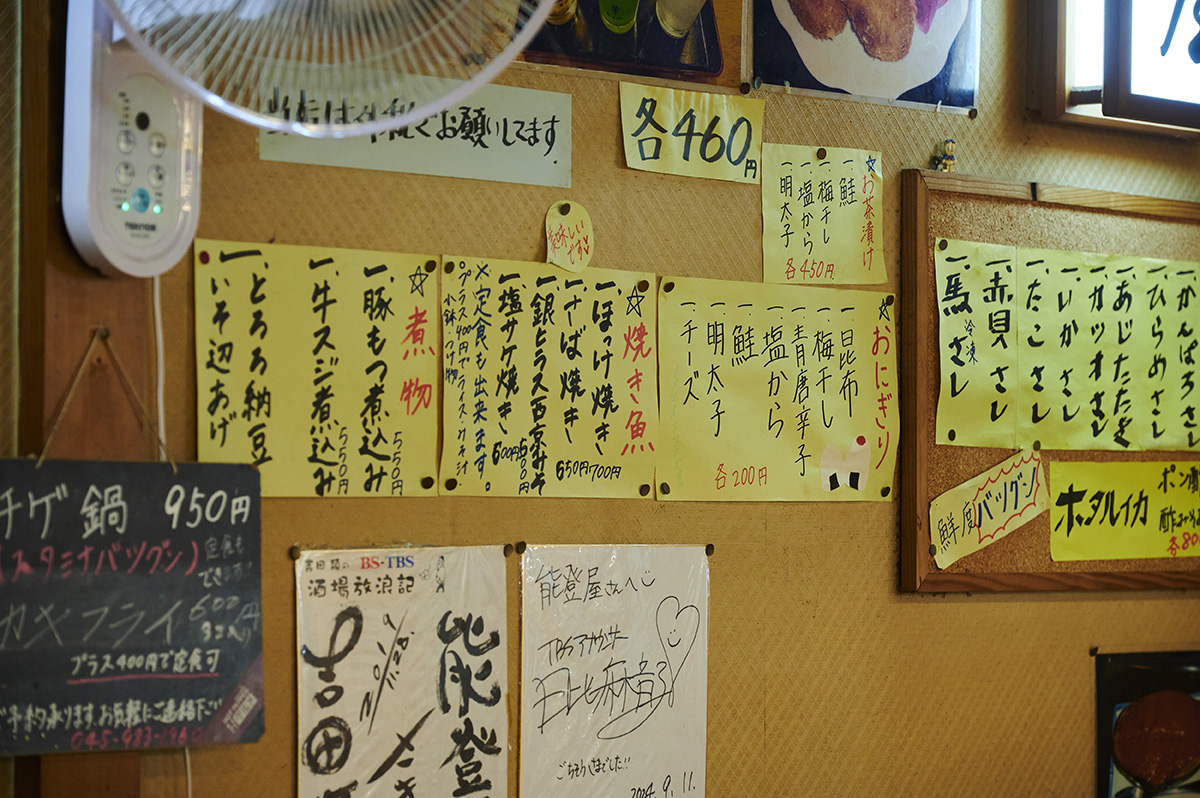 お願いしてます
各460円
☆お茶漬け
一、鮭
一、梅干し
一、塩から
一、明太子
各450円
美味しい
です
☆煮物
一、豚もつ煮込み
550円
一、牛スジ煮込み
550円
一、とろろ納豆
一、いそ辺あげ
☆焼き魚
一、ほっけ焼き
700円
一、さば焼き
650円
一、銀ヒラス西京みそ
600円
一、塩サケ焼き
600円
※定食も出来ます。
プラス400円でライス・みそ汁
小鉢・つけ物
☆おにぎり
一、昆布
一、梅干し
一、青唐辛子
一、塩から
一、鮭
一、明太子
一、チーズ
各200円
かんぱちさし
一、ひらめさし
一、カツオさし
一、あじたたき
一、いかさし
一、たこさし
一、赤貝さし
冷凍
一、馬さし
鮮度バツグン
ホタルイカ
ポン酢
酢みそ
各80
チゲ鍋 950円
(スタミナバツグン)
定食
でき
カキフライ 600円
プラス400円で定食可
ご予約承ります。お気軽にご連絡下
045-983-1960
吉田類の BS-TBS
酒場放浪記
能登
2019
11.28.
吉田
能登屋さんへ
TBSアナウンサー
日比麻音子
ごちそうさまでした!!
2024.9.11.